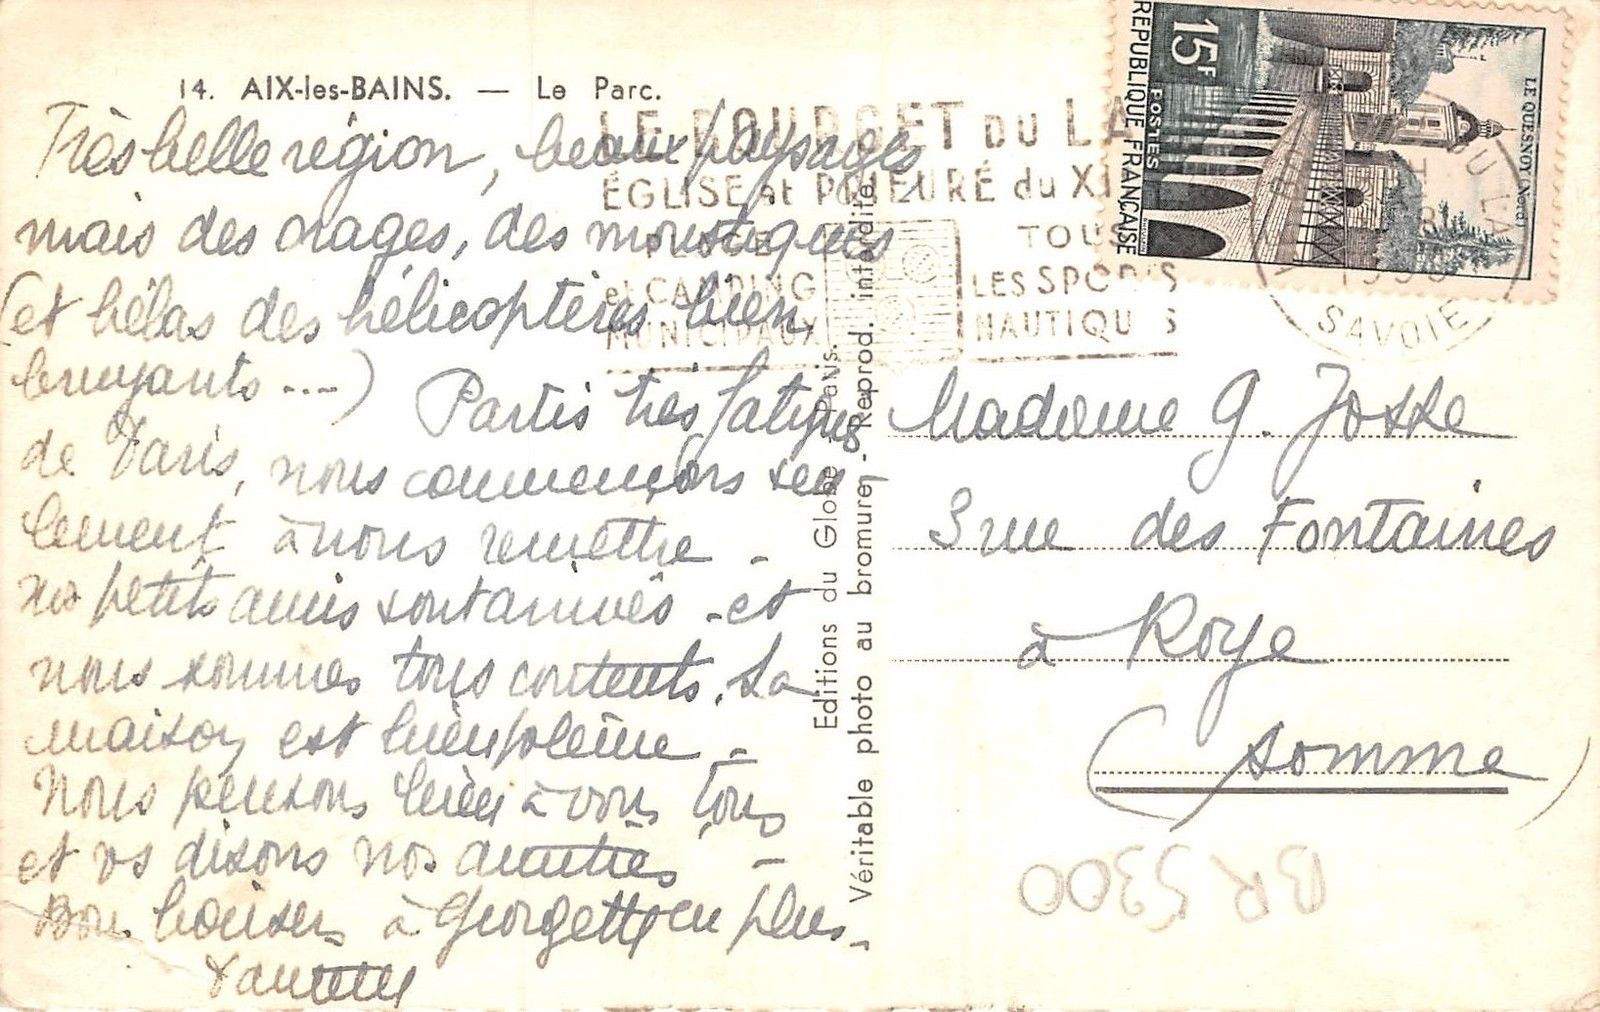 14. AIX-les-BAINS. — Le Parc.
Très belle région, beaux paysages
mais des orages, des moustiques
(et hélas des hélicoptères bien
bruyants ....) Partis très fatigués
de Paris, nous commençons seu
lement à nous remettre -
nos petits amis sont arrivés - et
nous sommes tous contents. La
maison est bien pleine -
Nous pensons bien à vous tous
et vs disons nos amitiés -
Bon baiser à Georgette en plus -
LE BOURGET DU LA
ÉGLISE et PRIEURÉ du XI
PLAGE
et CAMPING
MUNICIPAUX
TOU
LES SPORTS
NAUTIQU S
SAVOIE
15F
POSTES
RÉPUBLIQUE FRANÇAISE
LE QUESNOY (Nord)
Editions du Globe - Paris.
Véritable photo au bromure - Reprod. interdite.
Madame G. Josse
3 rue des Fontaines
à Roye
(Somme)
BR 5300